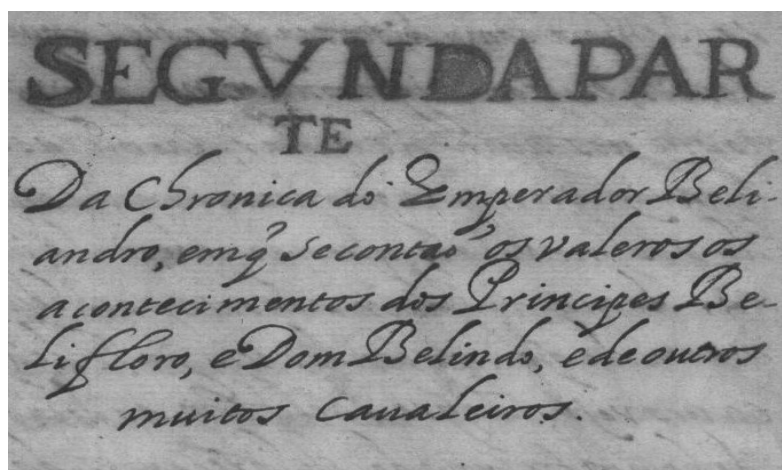 SEGVNDAPAR
TE
Da Chronica do Emperador Beli-
andro, emq̃ secontaõ os valerosos
acontecimentos dos Principes Be-
lifloro, e Dom Belindo, e de outros
muitos Caualeiros.